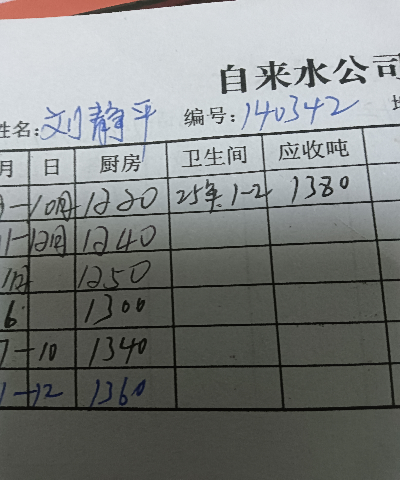 自来水公司
姓名: 刘静平 编号: 140342
月 日 厨房 卫生间 应收吨
-10月 1220 25年1-2 1380
1-12月 1240
1月 1250
6 1300
7-10 1340
1-12 1360